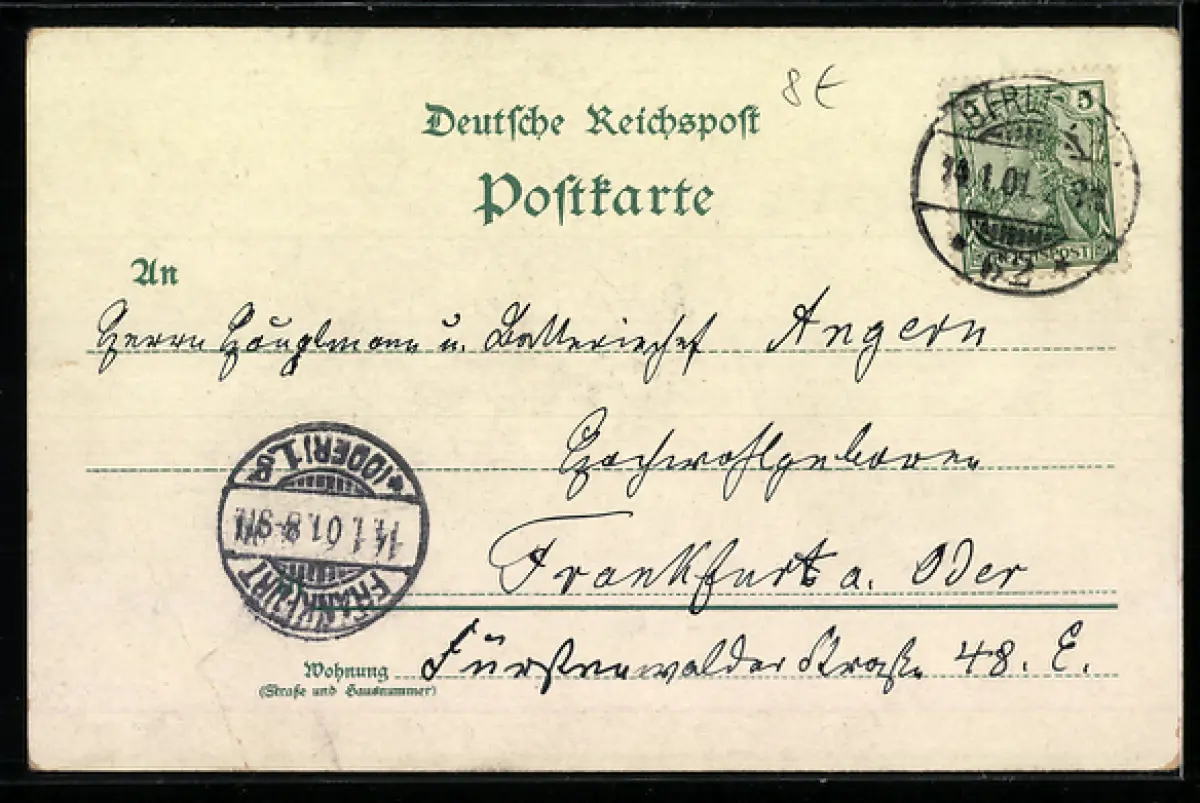 8 €
Deutsche Reichspost
Postkarte
BERLIN
5
14.1.01.
REICHSPOST
* 62 *
An
Herrn Hauptmann u. Batteriechef Angern
Hochwohlgeboren
*(ODER) 1.
14.1.01.8-9N.
FRANKFURT
Frankfurt a. Oder
Wohnung Fürstenwalder Straße 48. E.
(Straße und Hausnummer)